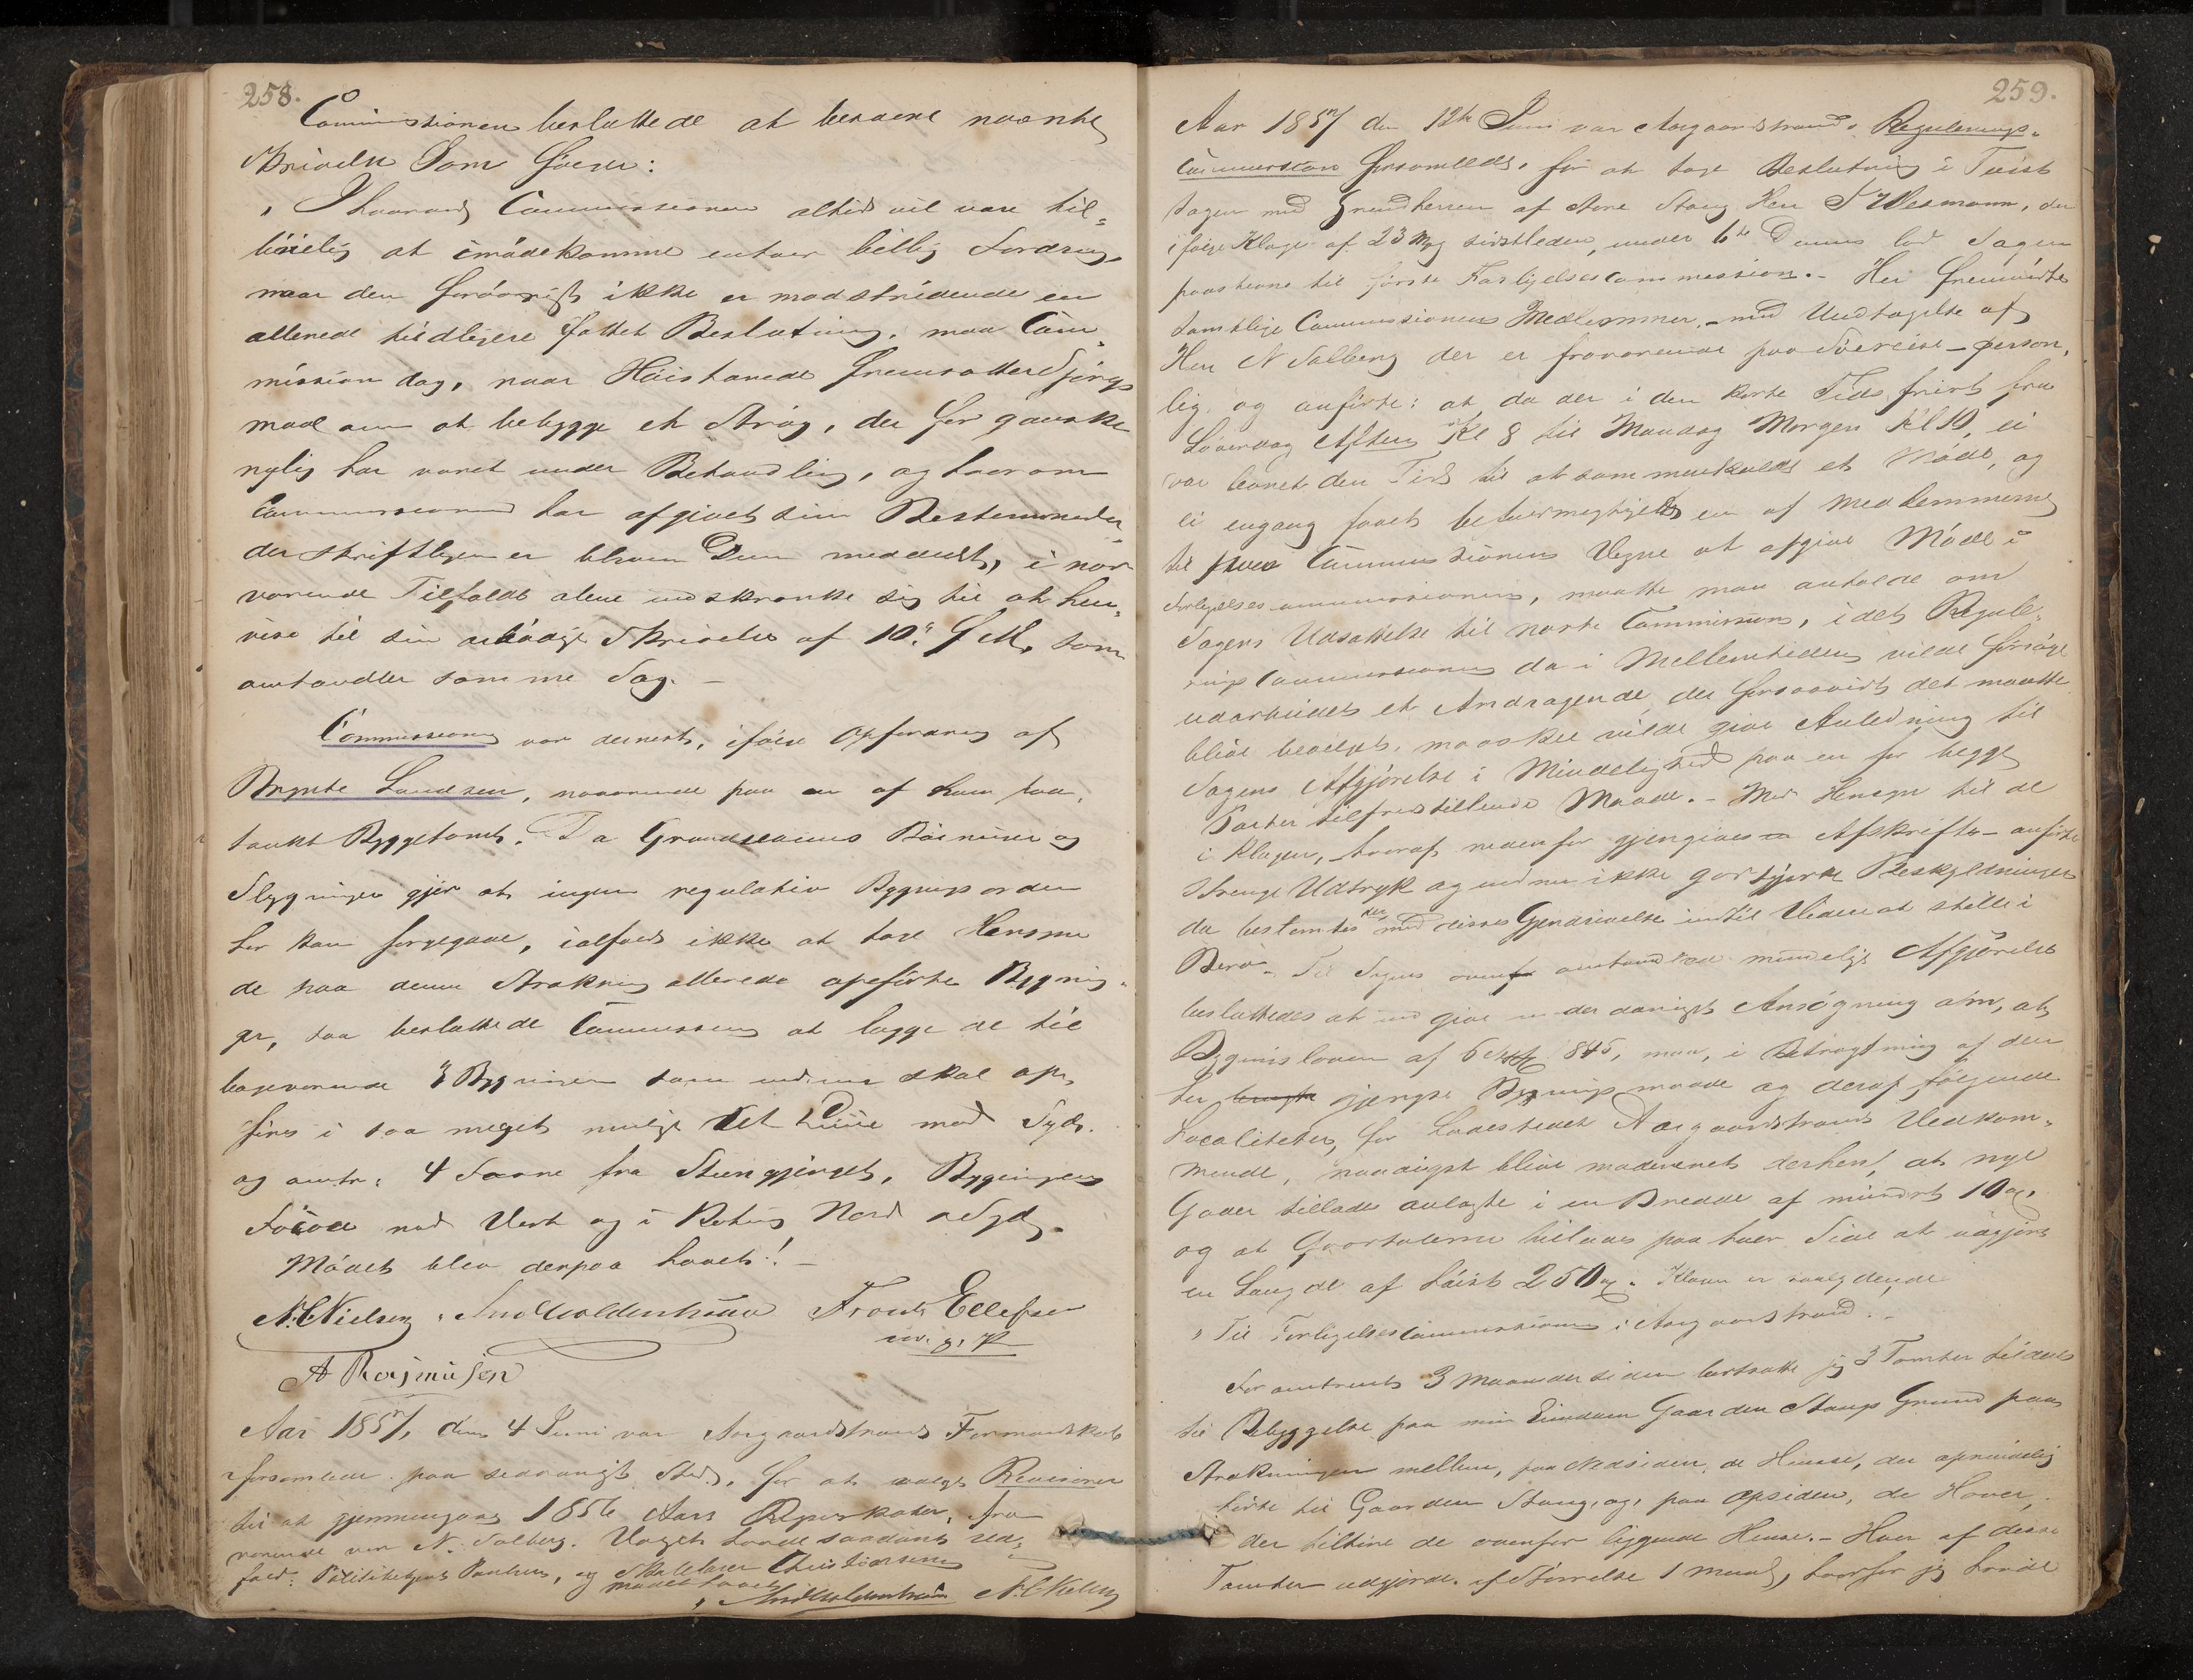 258.
Commissionen besluttede at besvare nævnte
Skrivelse som følger:
„Ihvorvel Commissionen altid vil være til-
bøielig at imødekomme enhver billig Fordring,
naar den forøvrigt ikke er modstridende en
allerede tidligere fattet Beslutning, maa Com-
mission dog, naar Høistærede fremsætter Spørgs
maal om at bebygge et Strøg, der for ganske
nylig har været under Behandling, og hvorom
Commissionen har afgivet sin Bestemmelse
der skriftligen er bleven Dem meddeelt, i nær
værende Tilfælde alene indskrænke sig til at hen-
vise til sin ærbødige Skrivelse af 10. f. M. som
omhandler samme Sag. —
Commissionen var dernæst, ifølge Opfordring af
Brynte Laursen, nærværende paa en af ham paa-
tænkt Byggetomt. Da Grundeiernes
Bygninger gjør at ingen regulativ Bygningsorden
her kan foregaae, ialfald ikke at tage Hensyn
de paa denne Strækning allerede opførte Bygnin-
ger, saa besluttede Commissionen at lægge de til
bageværende 3 Bygninger som endnu skal op-
føres i saa meget mulig ret Linie mod Syd.
og omtr. 4 Favne fra Steengjerdet, Bygningens
mod Vest og i Retning Nord og Syd.
Mødet blev derpaa hævet! —
N. C. Nielsen, And Choldenhaua Trouls Ellefsen
m. p. P
A Rasmusen
Aar 1857, den 4 Juni var Aasgaardstrands Formandskab
forsamlede paa sædvanligt Sted, for at vælge Revisorer
til at gjennemgaae 1856 Aars Regnskaber, fra
værende var N. Solberg. Valget havde saadant Ud-
fald: Politibetjent Paulsen, og Skolelærer Christiansen
mødet hævet
N. C. Nielsen
259.
Aar 1857 den 12te Juni var Aasgaardstrands Regulerings-
Commission forsamlede, for at tage Beslutning i Tvist
sagen med Grundherren af Store Stang Herr T Wesmann, der
ifølge Klage af 23 Maj sidstleden, under 6te Dennes lod Sagen
paastevne til første Forligelsescommission. — Her fremmødte
samtlige Commissionens Medlemmer, — med Undtagelse af
Herr N Solberg der er fraværende paa Søereise — person-
lig, og anførte: at da der i den korte Tidsfrist fra
Løverdag Aften Kl 8 til Mandag Morgen Kl 10, ei
var levnet den Tid til at sammenkalde et Møde, og
ei engang faaet bemyndiget en af Medlemmerne
til paa Commissionens Vegne at afgive Møde i
Forligelsescommissionen, maatte man anholde om
Sagens Udsættelse til næste Commission, idet Regule-
ringscommissionen da i Mellemtiden vilde forsøge
udarbeidet et Andragende, der forsaavidt det maatte
blive bevilget, maaskee vilde give Anledning til
Sagens Afgjørelse i Mindelighed paa en for begge
Parter tilfredsstillende Maade. — Med Hensyn til de
i Klagen, hvoraf nedenfor gjengives en Afskrift — anførte
strenge Udtryk og endnu ikke godtgjorte Beskyldninger
da bestemtes der med disses Gjendrivelse indtil Videre at stille i
Bero. — Til Sagens ovenfor omhandlede mindelige Afgjørelse
besluttedes at indgive underdanigst Ansøgning om, at
Bygningsloven af 6 Septbr 845, maa, i Betragtning af den
her gjængse Bygningsmaade og deraf følgende
Localiteter, for Ladestedet Aasgaardstrands Vedkom-
mende, naadigst blive modereret derhen, at nye
Gader tillades anlagte i en Bredde af mindst 10 al.
og at Qvartalerne tillades paa hver Side at udgjøre
en Længde af høist 250 al. Klagen er saalydende
„Til Forligelsescommissionen i Aasgaardstrand. —
For omtrent 3 Maaneder siden bortsatte jeg 3 Tomter tildeels
til Bebyggelse paa min Eiendom Gaarden Stangs Grund paa
Strækningen mellem, paa Nedsiden, de Huuse, der oprindelig
hørte til Gaarden Stang, og, paa Opsiden, de Haver,
der tilhøre de ovenfor liggende Huuse. — Hver af disse
Tomter udgjorde af Størrelse 1 Maal, hvorfor jeg havde